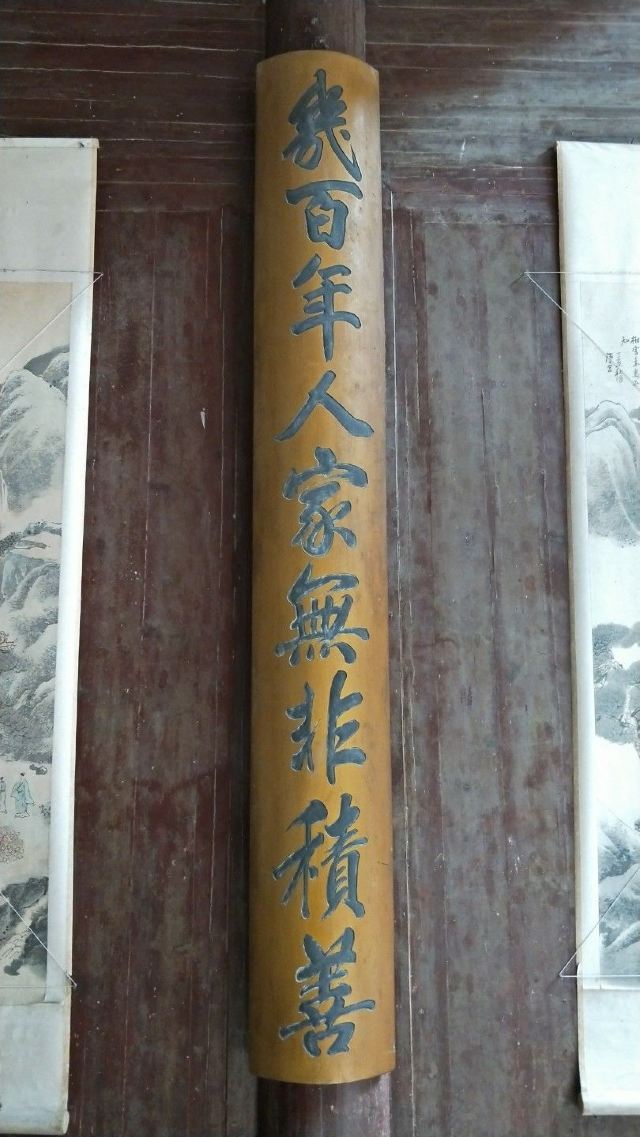 幾百年人家無非積善